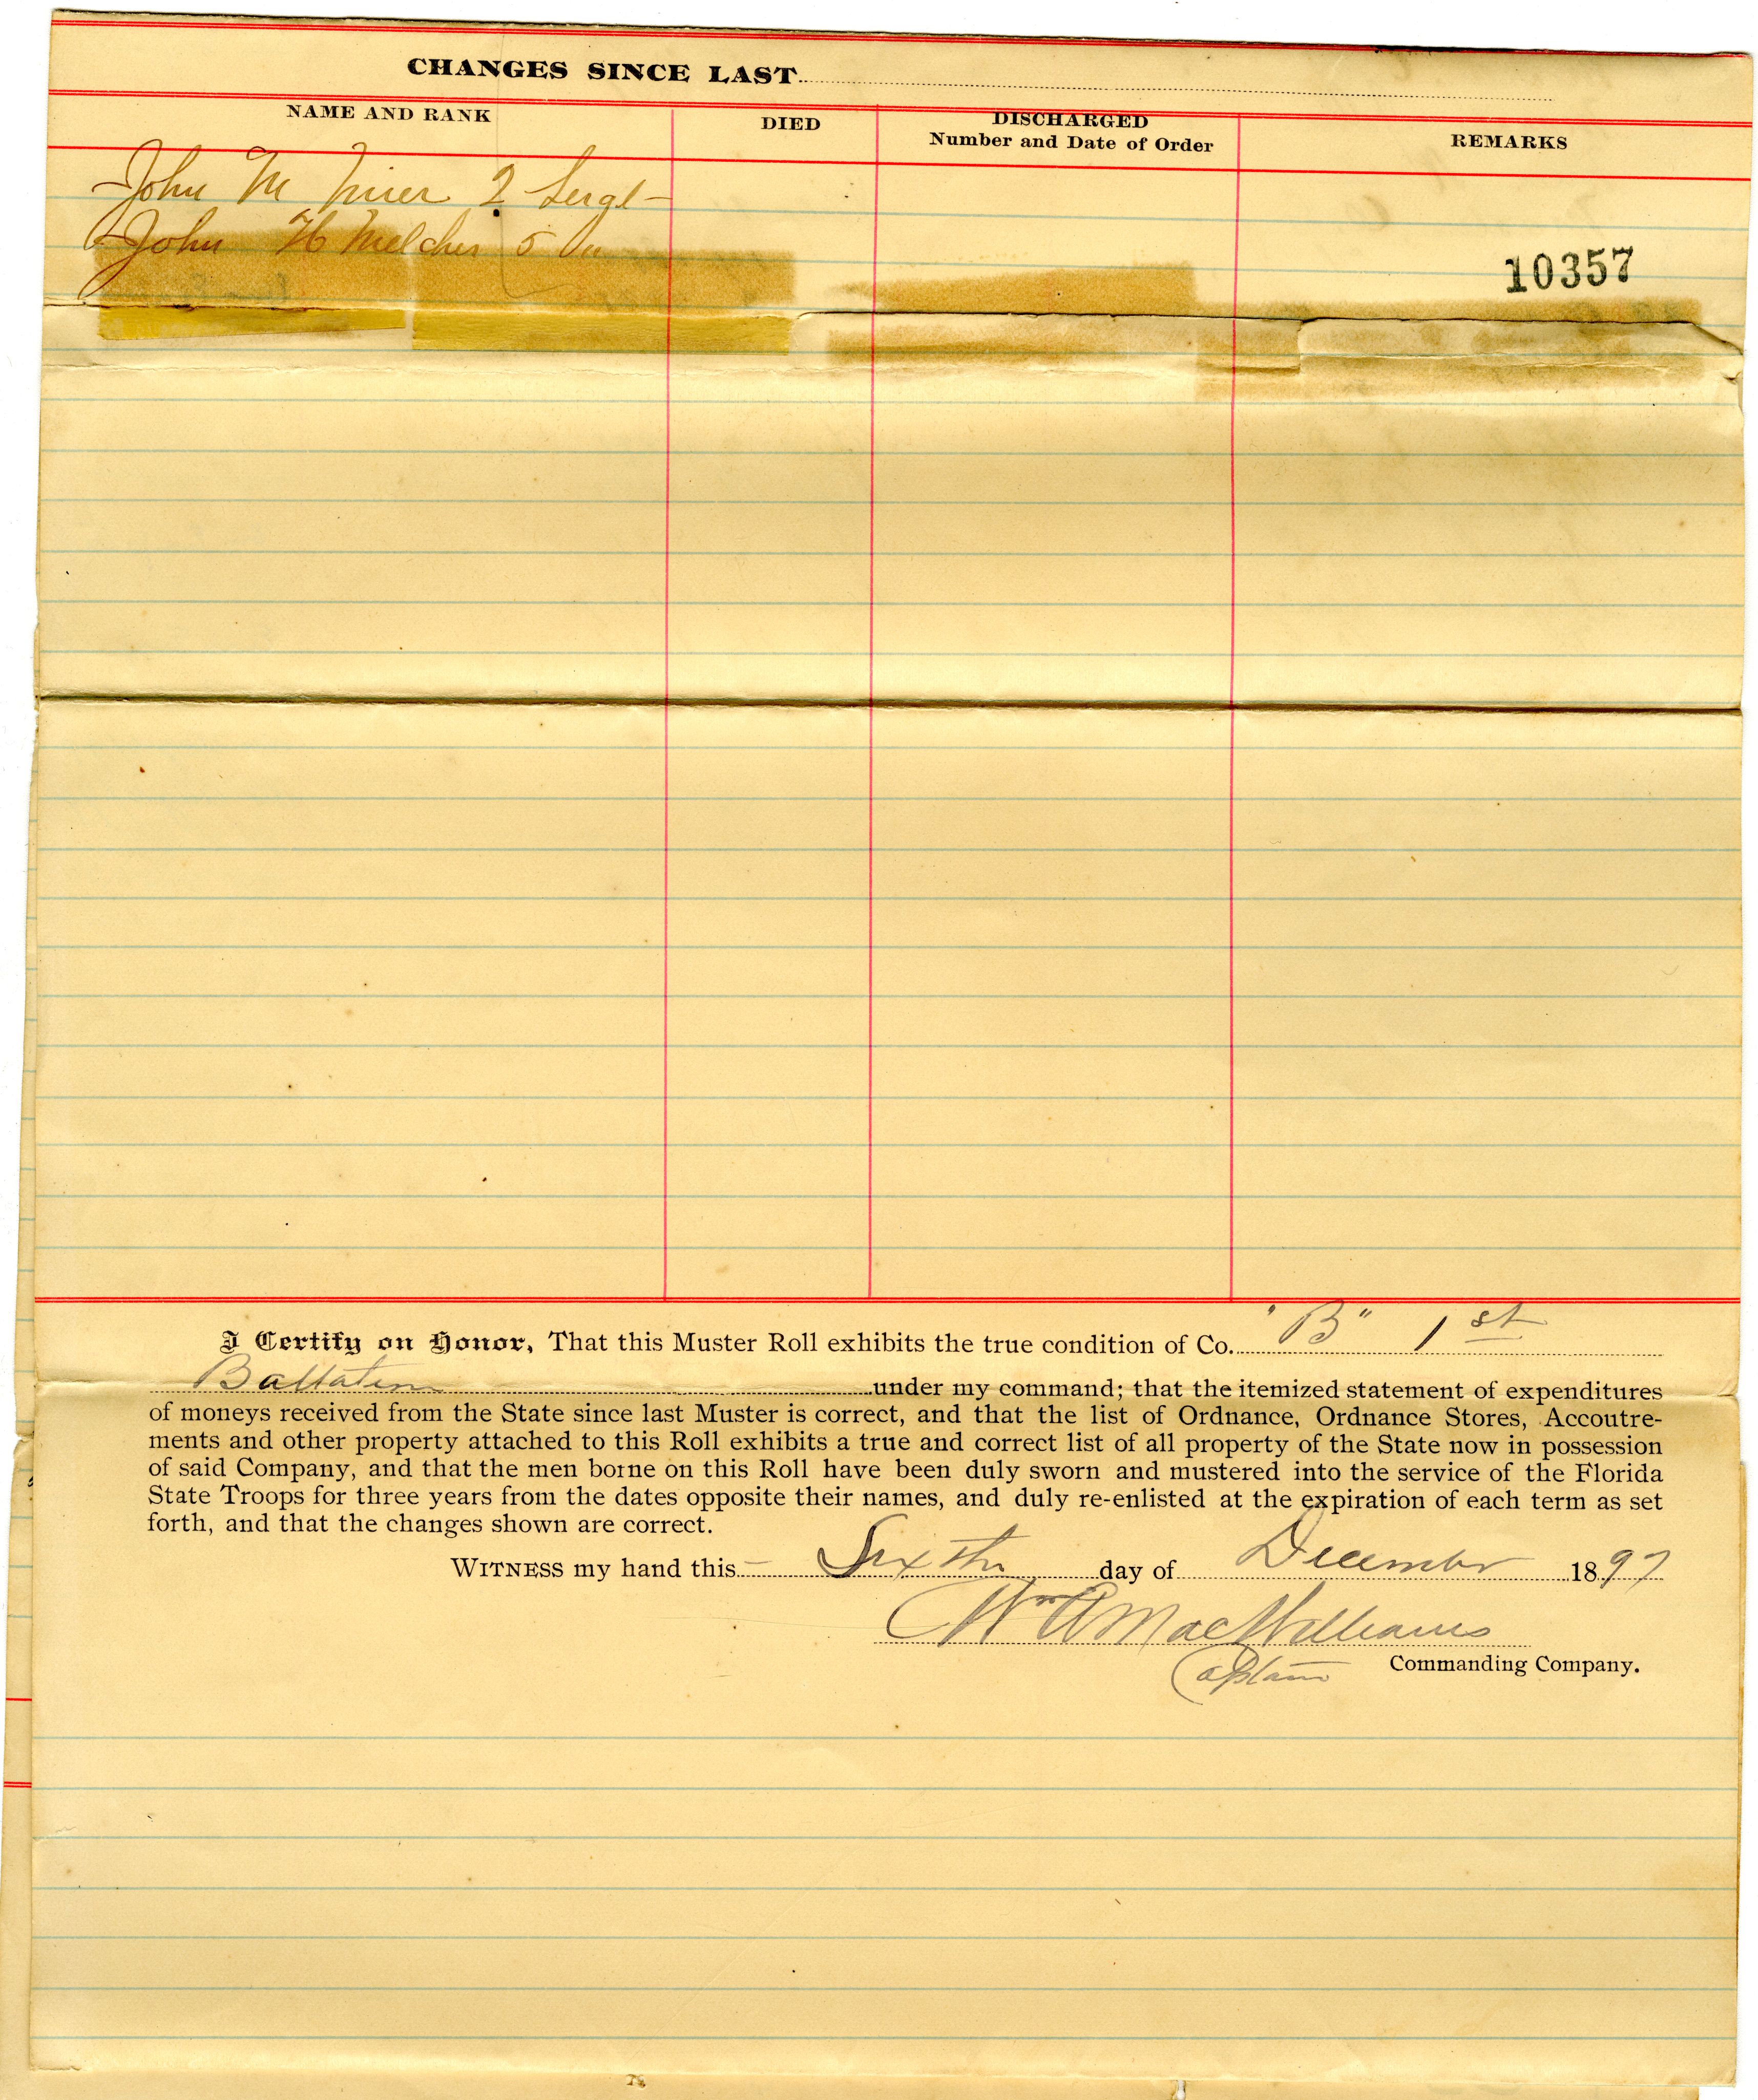 CHANGES SINCE LAST
NAME AND RANK DIED DISCHARGED Number and Date of Order REMARKS
John M 2 Sergt
John H Melcher 5 Do
10357
I Certify on Honor, That this Muster Roll exhibits the true condition of Co. "B" 1st
Battalion under my command; that the itemized statement of expenditures
of moneys received from the State since last Muster is correct, and that the list of Ordnance, Ordnance Stores, Accoutre-
ments and other property attached to this Roll exhibits a true and correct list of all property of the State now in possession
of said Company, and that the men borne on this Roll have been duly sworn and mustered into the service of the Florida
State Troops for three years from the dates opposite their names, and duly re-enlisted at the expiration of each term as set
forth, and that the changes shown are correct.
WITNESS my hand this Sixth day of December 1897
Wm A MacWilliams
Captain Commanding Company.